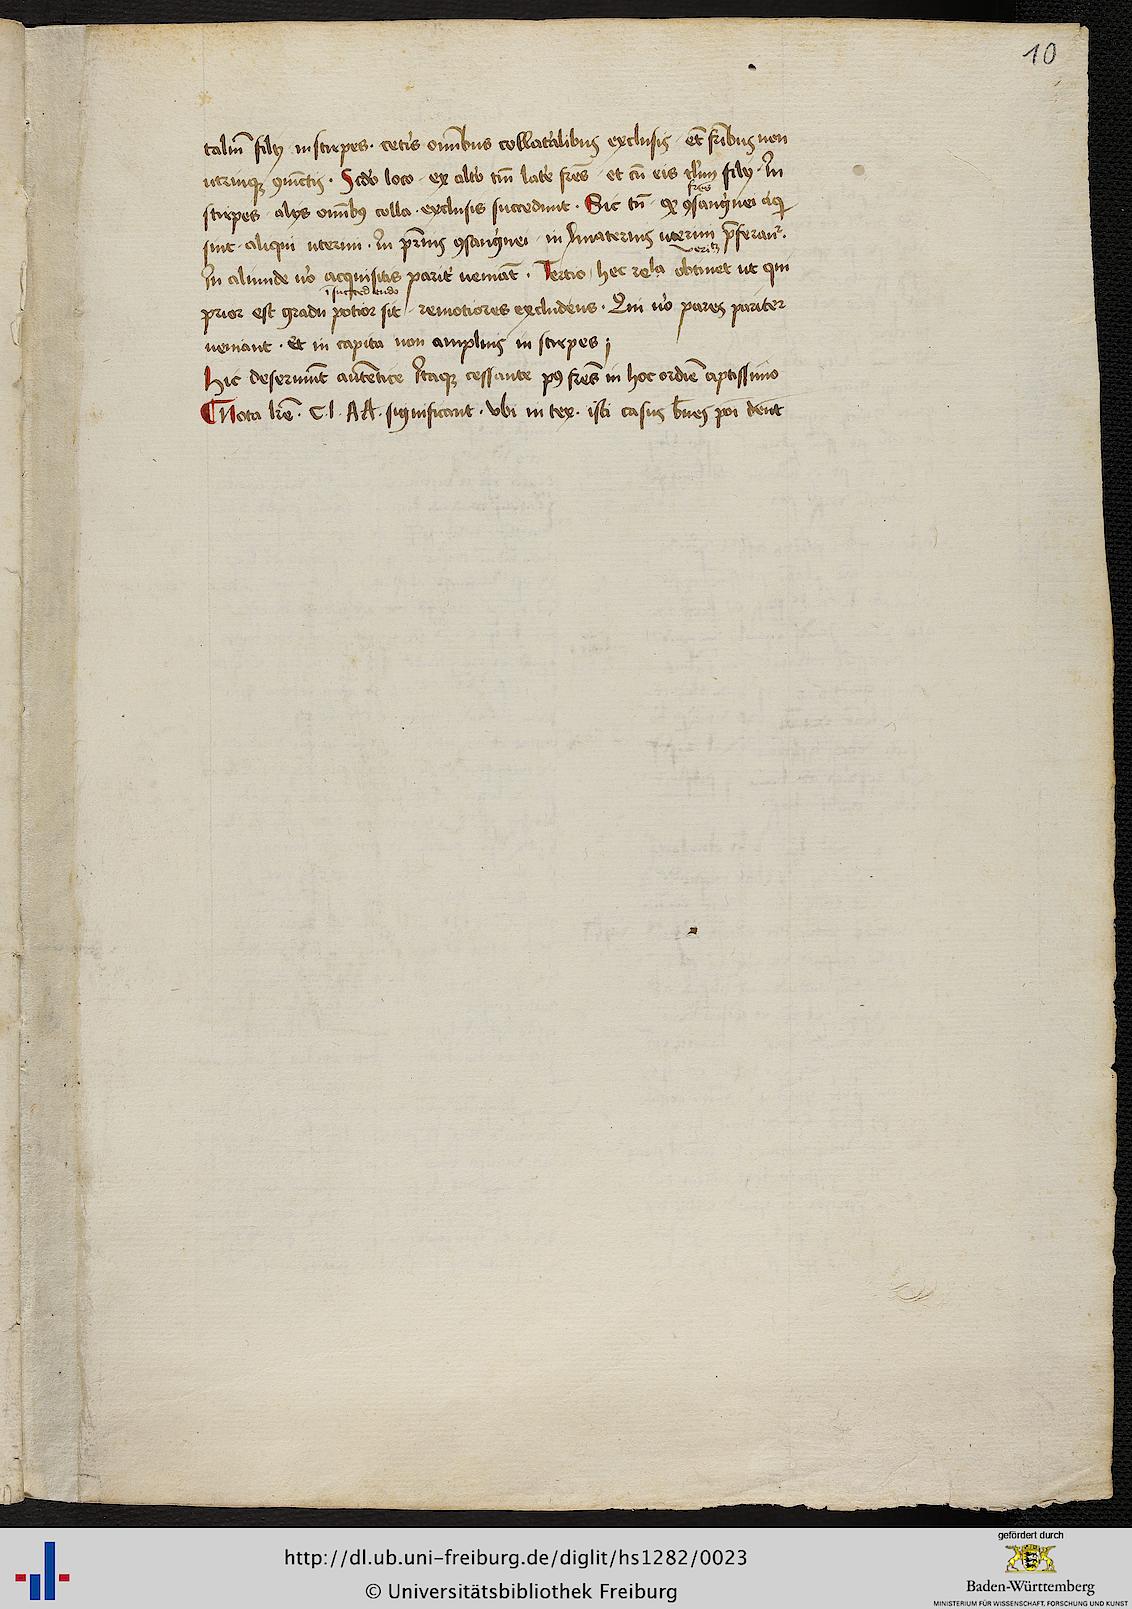 10
talium filij in stirpes · cetis omibus collatalibus exclusis · et fribus non
utrinque coniuctis · Scdo loco · ex alto tm late fres · et cu eis filij · In
stirpes · alijs omibus colla · exclusis succedunt · Sic tn
fres
sint · aliqui uterini · In prnis consangnei · in maternis uterini preferantr ·
In aliunde vo acquisitis parit veniat · Tertio hec rela obtinet ut qui
in succedendo
prior est gradu potior sit · remotiores excludens · Qui vo pares pariter
veniant · Et in capita non amplius in stirpes
Hic deserviunt autentice Itaque cessante post fres in hoc ordie aptissimo
Nota lre · C l · AA · significant · vbi in tex · isti casus
http://dl.ub.uni-freiburg.de/diglit/hs1282/0023
© Universitätsbibliothek Freiburg
gefördert durch
Baden-Württemberg
MINISTERIUM FÜR WISSENSCHAFT, FORSCHUNG UND KUNST